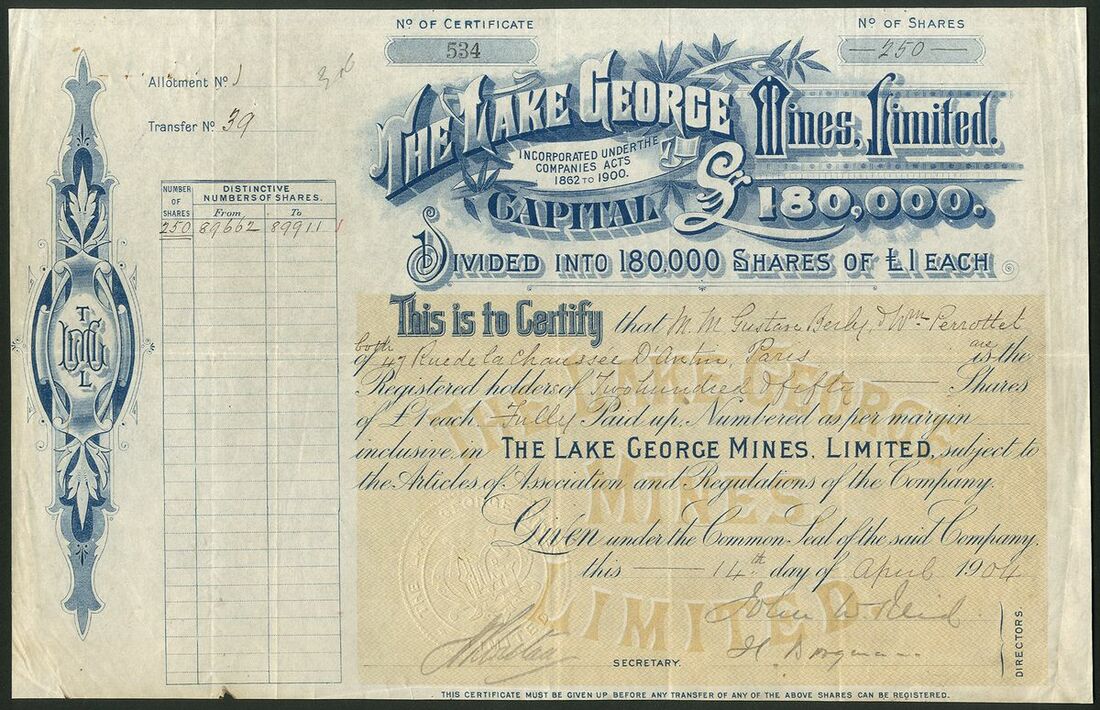 No OF CERTIFICATE
534
No OF SHARES
250
Allotment No 1
Transfer No 39
THE LAKE GEORGE Mines, Limited.
INCORPORATED UNDER THE
COMPANIES ACTS
1862 TO 1900.
CAPITAL £180,000.
DIVIDED INTO 180,000 SHARES OF £1 EACH
NUMBER OF SHARES
DISTINCTIVE NUMBERS OF SHARES.
From To
250 89662 89911
This is to Certify that M. M. Gustave & Wm Perrottet
both are
of 47 Rue de la Chaussée D'Antin, Paris is the
Registered holders of Two hundred & fifty Shares
of £1 each Fully Paid up, Numbered as per margin
inclusive, in THE LAKE GEORGE MINES, LIMITED, subject to
the Articles of Association and Regulations of the Company.
Given under the Common Seal of the said Company,
this 14th day of April 1904
John W. Reid
SECRETARY.
DIRECTORS.
THE LAKE GEORGE
MINES
LIMITED
THIS CERTIFICATE MUST BE GIVEN UP BEFORE ANY TRANSFER OF ANY OF THE ABOVE SHARES CAN BE REGISTERED.